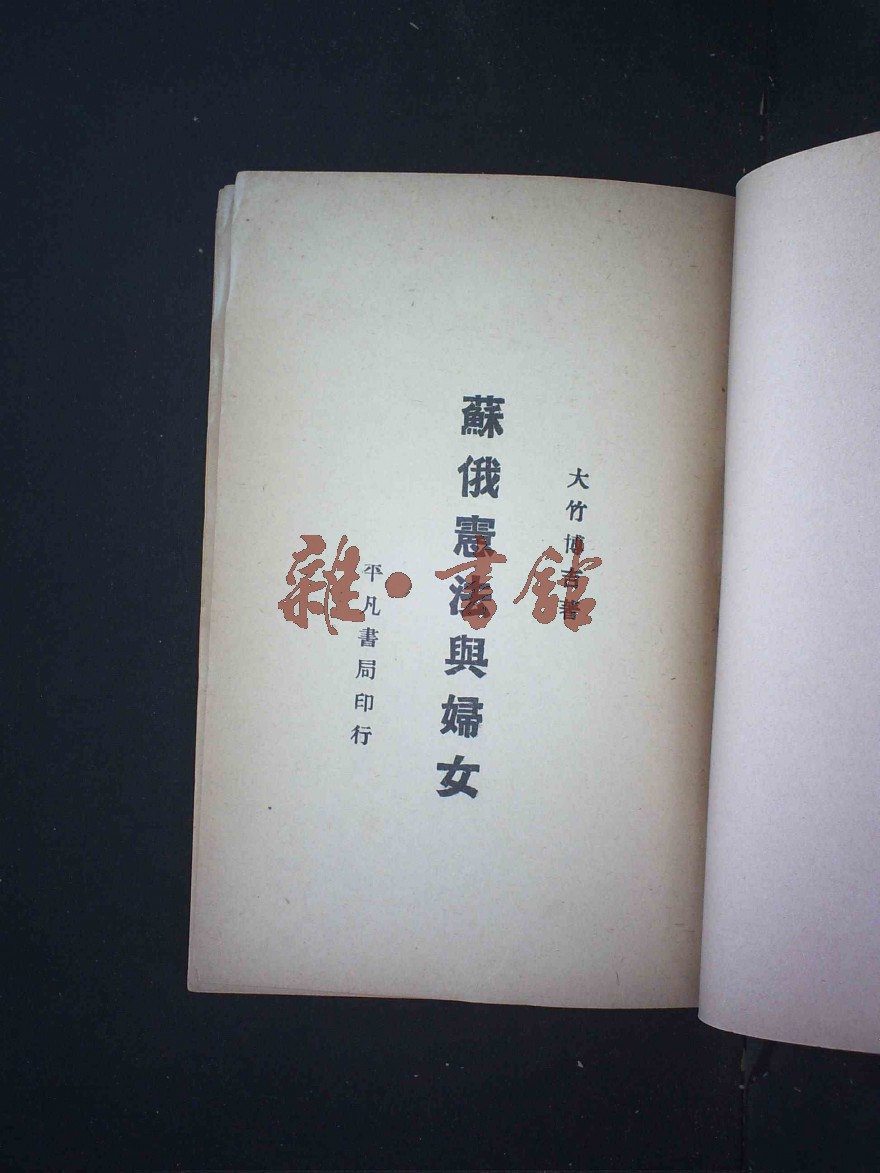 大竹博吉著
蘇俄憲法與婦女
平凡書局印行
雜·書館